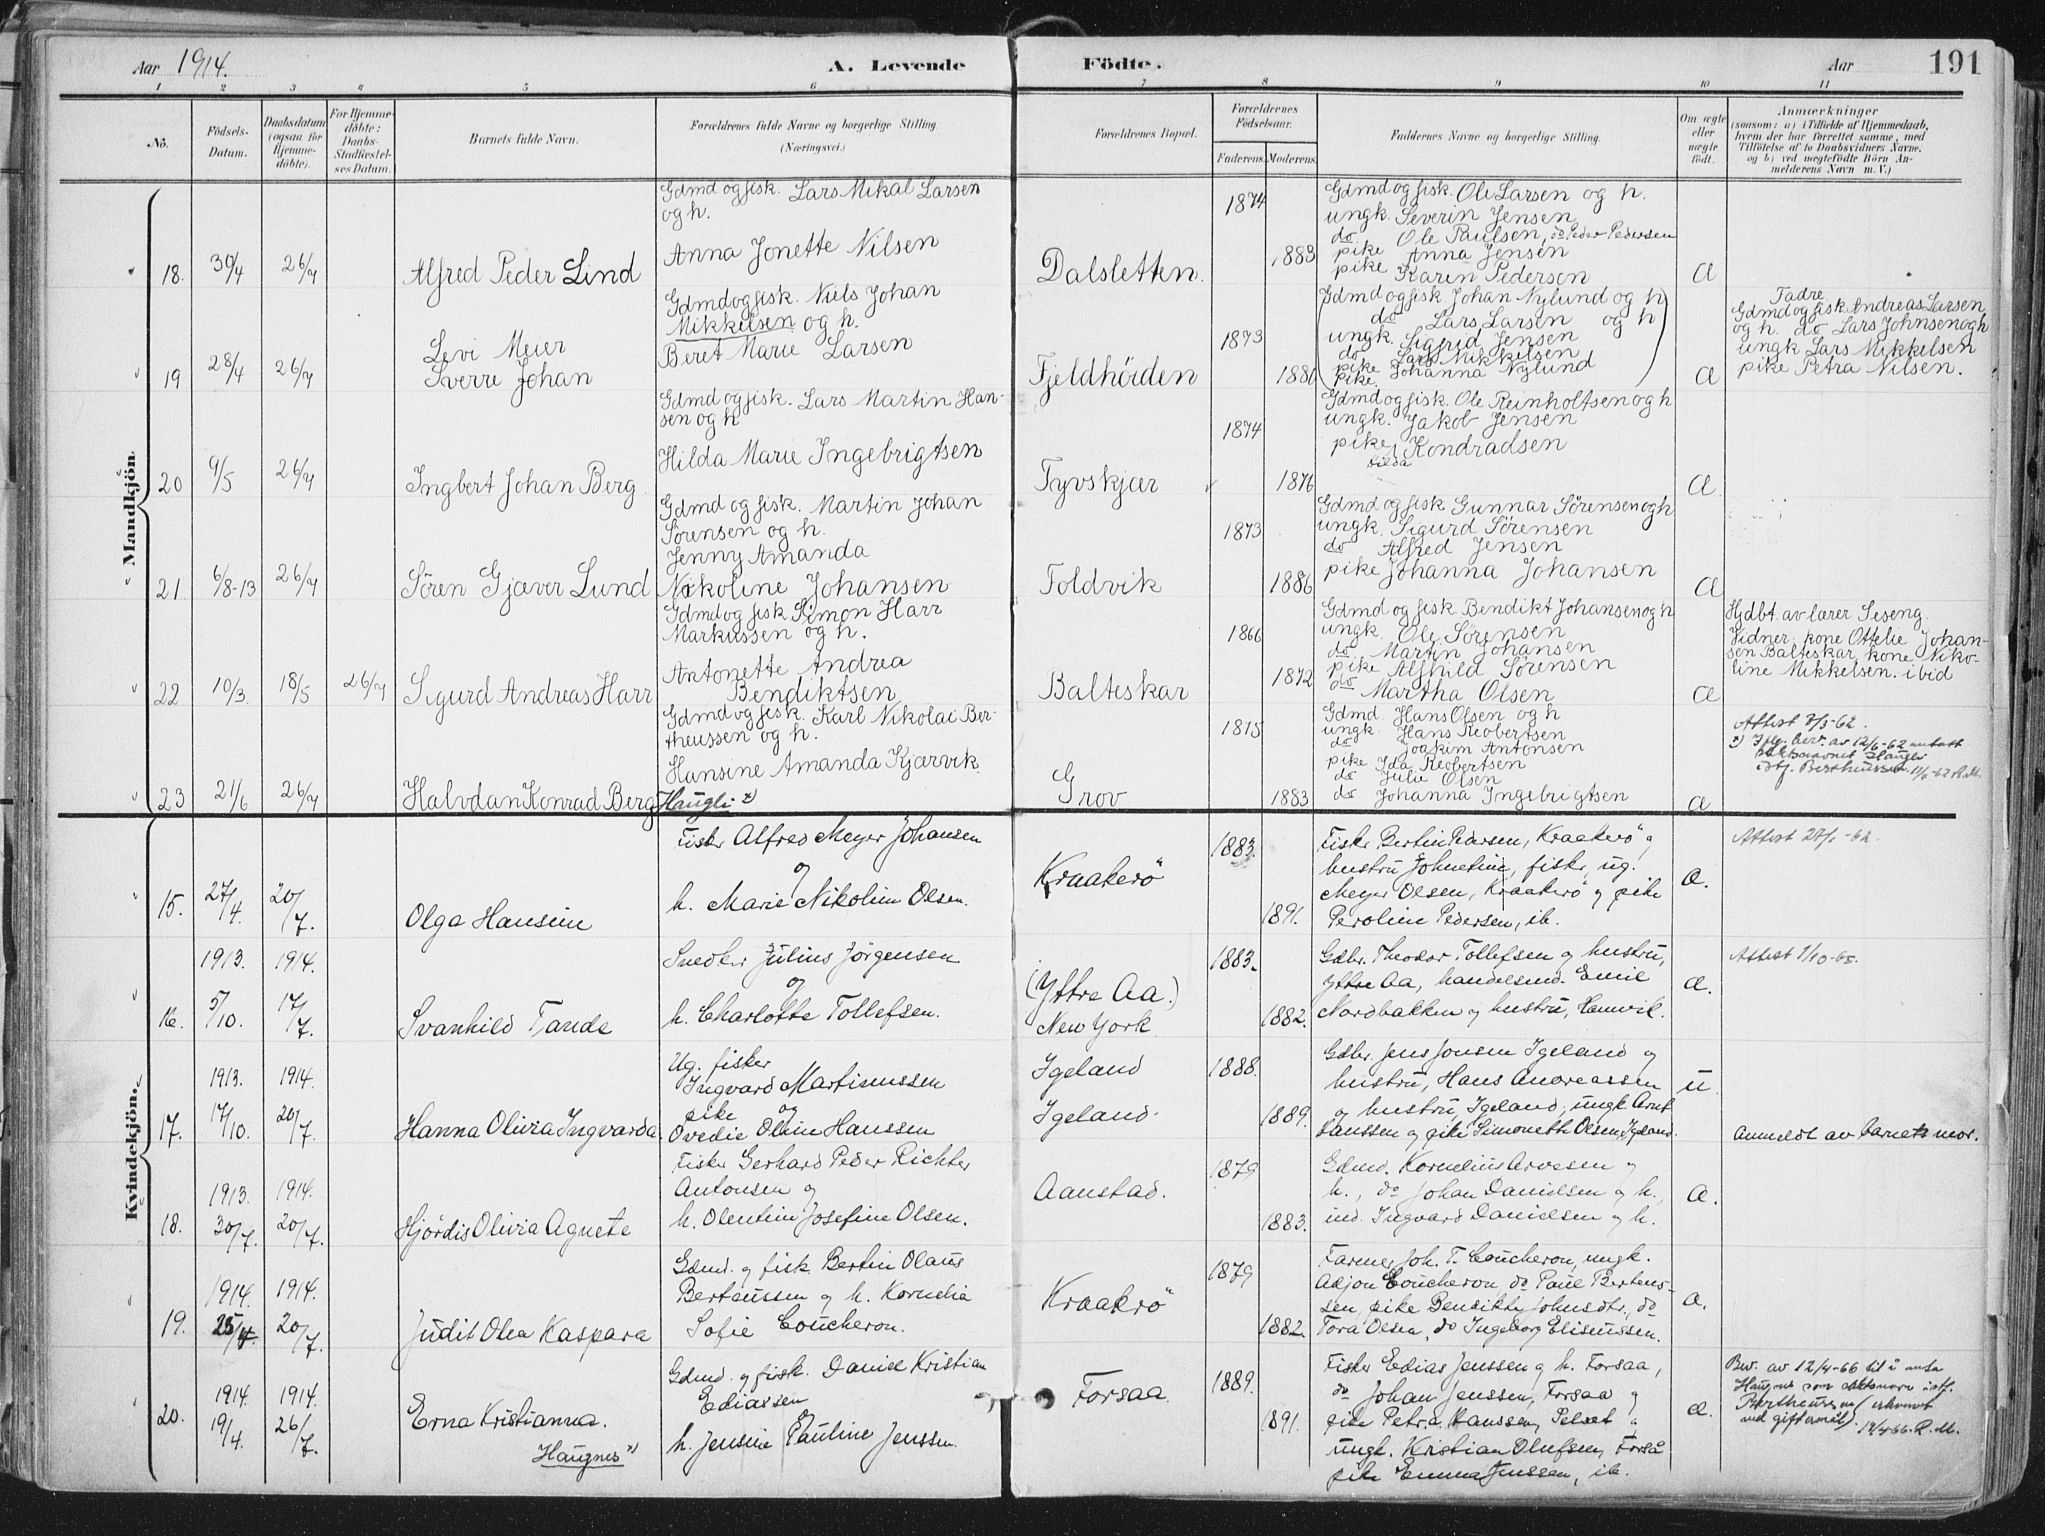 Aar 1914. A. Levende Födte. Aar 191
1 2 3 4 5 6 7 8 9 10 11
No.
Födsels-
Datum.
Daabsdatum
(ogsaa for
Hjemme-
döbte).
For Hjemme-
döbte:
Daabs-
Stadfæstel-
ses Datum.
Barnets fulde Navn.
Forældrenes fulde Navne og borgerlige Stilling.
(Næringsvei.)
Forældrenes Bopæl.
Forældrenes
Födselsaar.
Faderens. Moderens.
Faddernes Navne og borgerlige Stilling.
Om ægte
eller
uægte
födt.
Anmærkninger
(saasom: a) i Tilfælde af Hjemmedaab,
hvem der har forrettet samme, med
Tilföielse af to Daabsvidners Navne,
og b) ved uægtefödte Börn An-
melderens Navn m. V.)
Mandkjön.
18. 30/4 26/7 Alfred Peder Lind
Gdmd og fisk. Lars Mikal Larsen
og h.
Anna Jonette Nilsen
Dalsletten.
1874
1883
Gdmd og fisk. Ole Larsen og h.
ungk. Severin Jensen
do Ole Paulsen, do Peder Pedersen
pike Anna Jensen
pike Karen Pedersen
a
19 28/4 26/7
Levi Meier
Sverre Johan
Gdmd og fisk. Niels Johan
Mikkelsen og h.
Beret Marie Larsen
Fjeldhöiden
1873
1881
(Gdmd og fisk. Johan Nylund og h
do Lars Larsen og h
ungk. Sigfrid Jensen
do Lars Mikkelsen
pike
pike Johanna Nylund)
a
Fadre
Gdmd og fisk. Andreas Larsen
og h. do Lars Johnsen og h
ungk Lars Mikkelsen
pike Petra Nilsen.
20 9/5 26/7 Ingbert Johan Berg
Gdmd og fisk. Lars Martin Han-
sen og h
Hilda Marie Ingebrigtsen
Tyvskjær
1874
1876
Gdmd og fisk. Ole Reinholtsen og h
ungk. Jakob Jensen
pike Kondradsen
Hilda
a
21 6/8-13 26/7 Sören Gjæver Lund
Gdmd og fisk. Martin Johan
Sörensen og h.
Jenny Amanda
Nikoline Johansen
Foldvik
1873
1886
Gdmd og fisk Gunnar Sörensen og h
ungk. Sigurd Sörensen
do Alfred Jensen
pike Johanna Johansen
a
22 10/3 18/5 26/7 Sigurd Andreas Harr
Gdmd og fisk Simon Harr
Markussen og h.
Antonette Andrea
Bendiktsen
Balteskar
1866
1872
Gdmd og fisk Bendikt Johansen og h
ungk. Ole Sörensen
do Martin Johansen
pike Alfhild Sörensen
do Martha Olsen
a
Hjdbt av lærer Seseng
Vidner: kone Ottelie Johan-
sen Balteskar, kone Niko-
line Mikkelsen. ibid
23 21/6 26/7 Halvdan Konrad Berg Haugli x)
Gdmd og fisk. Karl Nikolai Ber-
theussen og h.
Hansine Amanda Kjærvik
Grov
1815
1883
Gdmd Hans Olsen og h
ungk. Hans Reobertsen
do Joakim Antonsen
pike Ida Reobertsen
do Julie Olsen
do Johanna Ingebrigtsen
a
Attest 7/3-62.
x) Iflg. bev. av 12/6-62 antatt
slektsnavnet Haugli
istf. Berthussen
Kvindekjön.
15. 27/4. 20/7. Olga Hansine
Fisker Alfred Meyer Johansen
og
h. Marie Nikoline Olsen.
Kraakerö
1883.
1891.
Fisker Bertin Larsen, Kraakerö og
hustru Johnetine, fisker, ug.
Meyer Olsen, Kraakerö og pike
Peroline Pedersen, ib.
a.
16. 1913. 5/10. 1914. 17/7. Svanhild Tande
Snedker Julius Jörgensen
og
h. Charlotte Tollefsen.
(Yttre Aa.)
New York
1883.
1882.
Gdbr. Theodor Tollefsen og hustru,
Yttre Aa, handelsmd. Emil
Nordbakken og hustru, Hamvik.
a.
Attest 1/10-65.
17. 1913. 17/10. 1914. 20/7. Hanna Olivia Ingvarda
Ug. fisker
Ingvard Martinussen
og
pike
Ovedie Oline Hanssen
Igeland
Igeland.
1888.
1889.
Gdbr. Jens Jonsen Igeland og
hustru, Hans Andreassen
og hustru, Igeland; ungk. Arnt
Hanssen og pike Simoneth Olsen, Igeland.
u.
Anmeldt av barnets mor.
18. 1913. 30/7. 1914. 20/7. Hjördis Olivia Agnete
Fisker Gerhard Peder Richter
Antonsen og
h. Olentine Josefine Olsen.
Aanstad.
1879
1883.
Gdmd. Kornelius Arvesen og
h., do Johan Danielsen og h.,
ind. Ingvard Danielsen og h.
a.
19. 1914. 25/4. 1914. 20/7. Judit Olea Kaspara
Gdmd. og fisk. Bertin Olaus
Berteussen og h. Kornelia
Sofie Coucheron.
Kraakrö
1879
1882.
Farmer Joh. T. Coucheron, ungk.
Adjon Coucheron do Paul Bertens-
sen, pike Bendikte Johnsdtr., do
Tora Olsen, do Ingeborg Elisussen.
a.
20. 1914. 19/4. 1914. 26/7. Erna Kristianna.
Haugnes x)
Gdmd. og fisk. Daniel Kristian
Ediassen
og
h. Jensine Pauline Jenssen.
Forsaa.
1889.
1891.
Fisker Edias Jenssen og h. Forsaa,
do Johan Jenssen, Forsaa og
pike Petra Hanssen, Selset og
ungk. Kristian Olufsen, Forså
pike Emma Jenssen, ib.
a.
Bev. av 12/4-66 til å anta
Haugnes som slektsnavn istf.
Bertheussen / erhvervet
ved giftermål. 19/4 66. R.M.